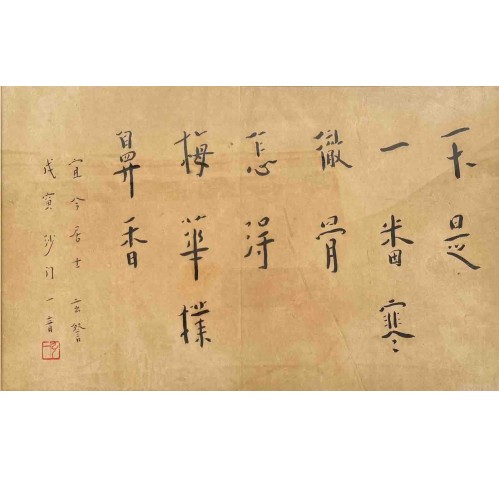 不是
一番寒
徹骨
怎得
梅華撲
鼻香
宜今居士 玄詧
戊寅沙門一音